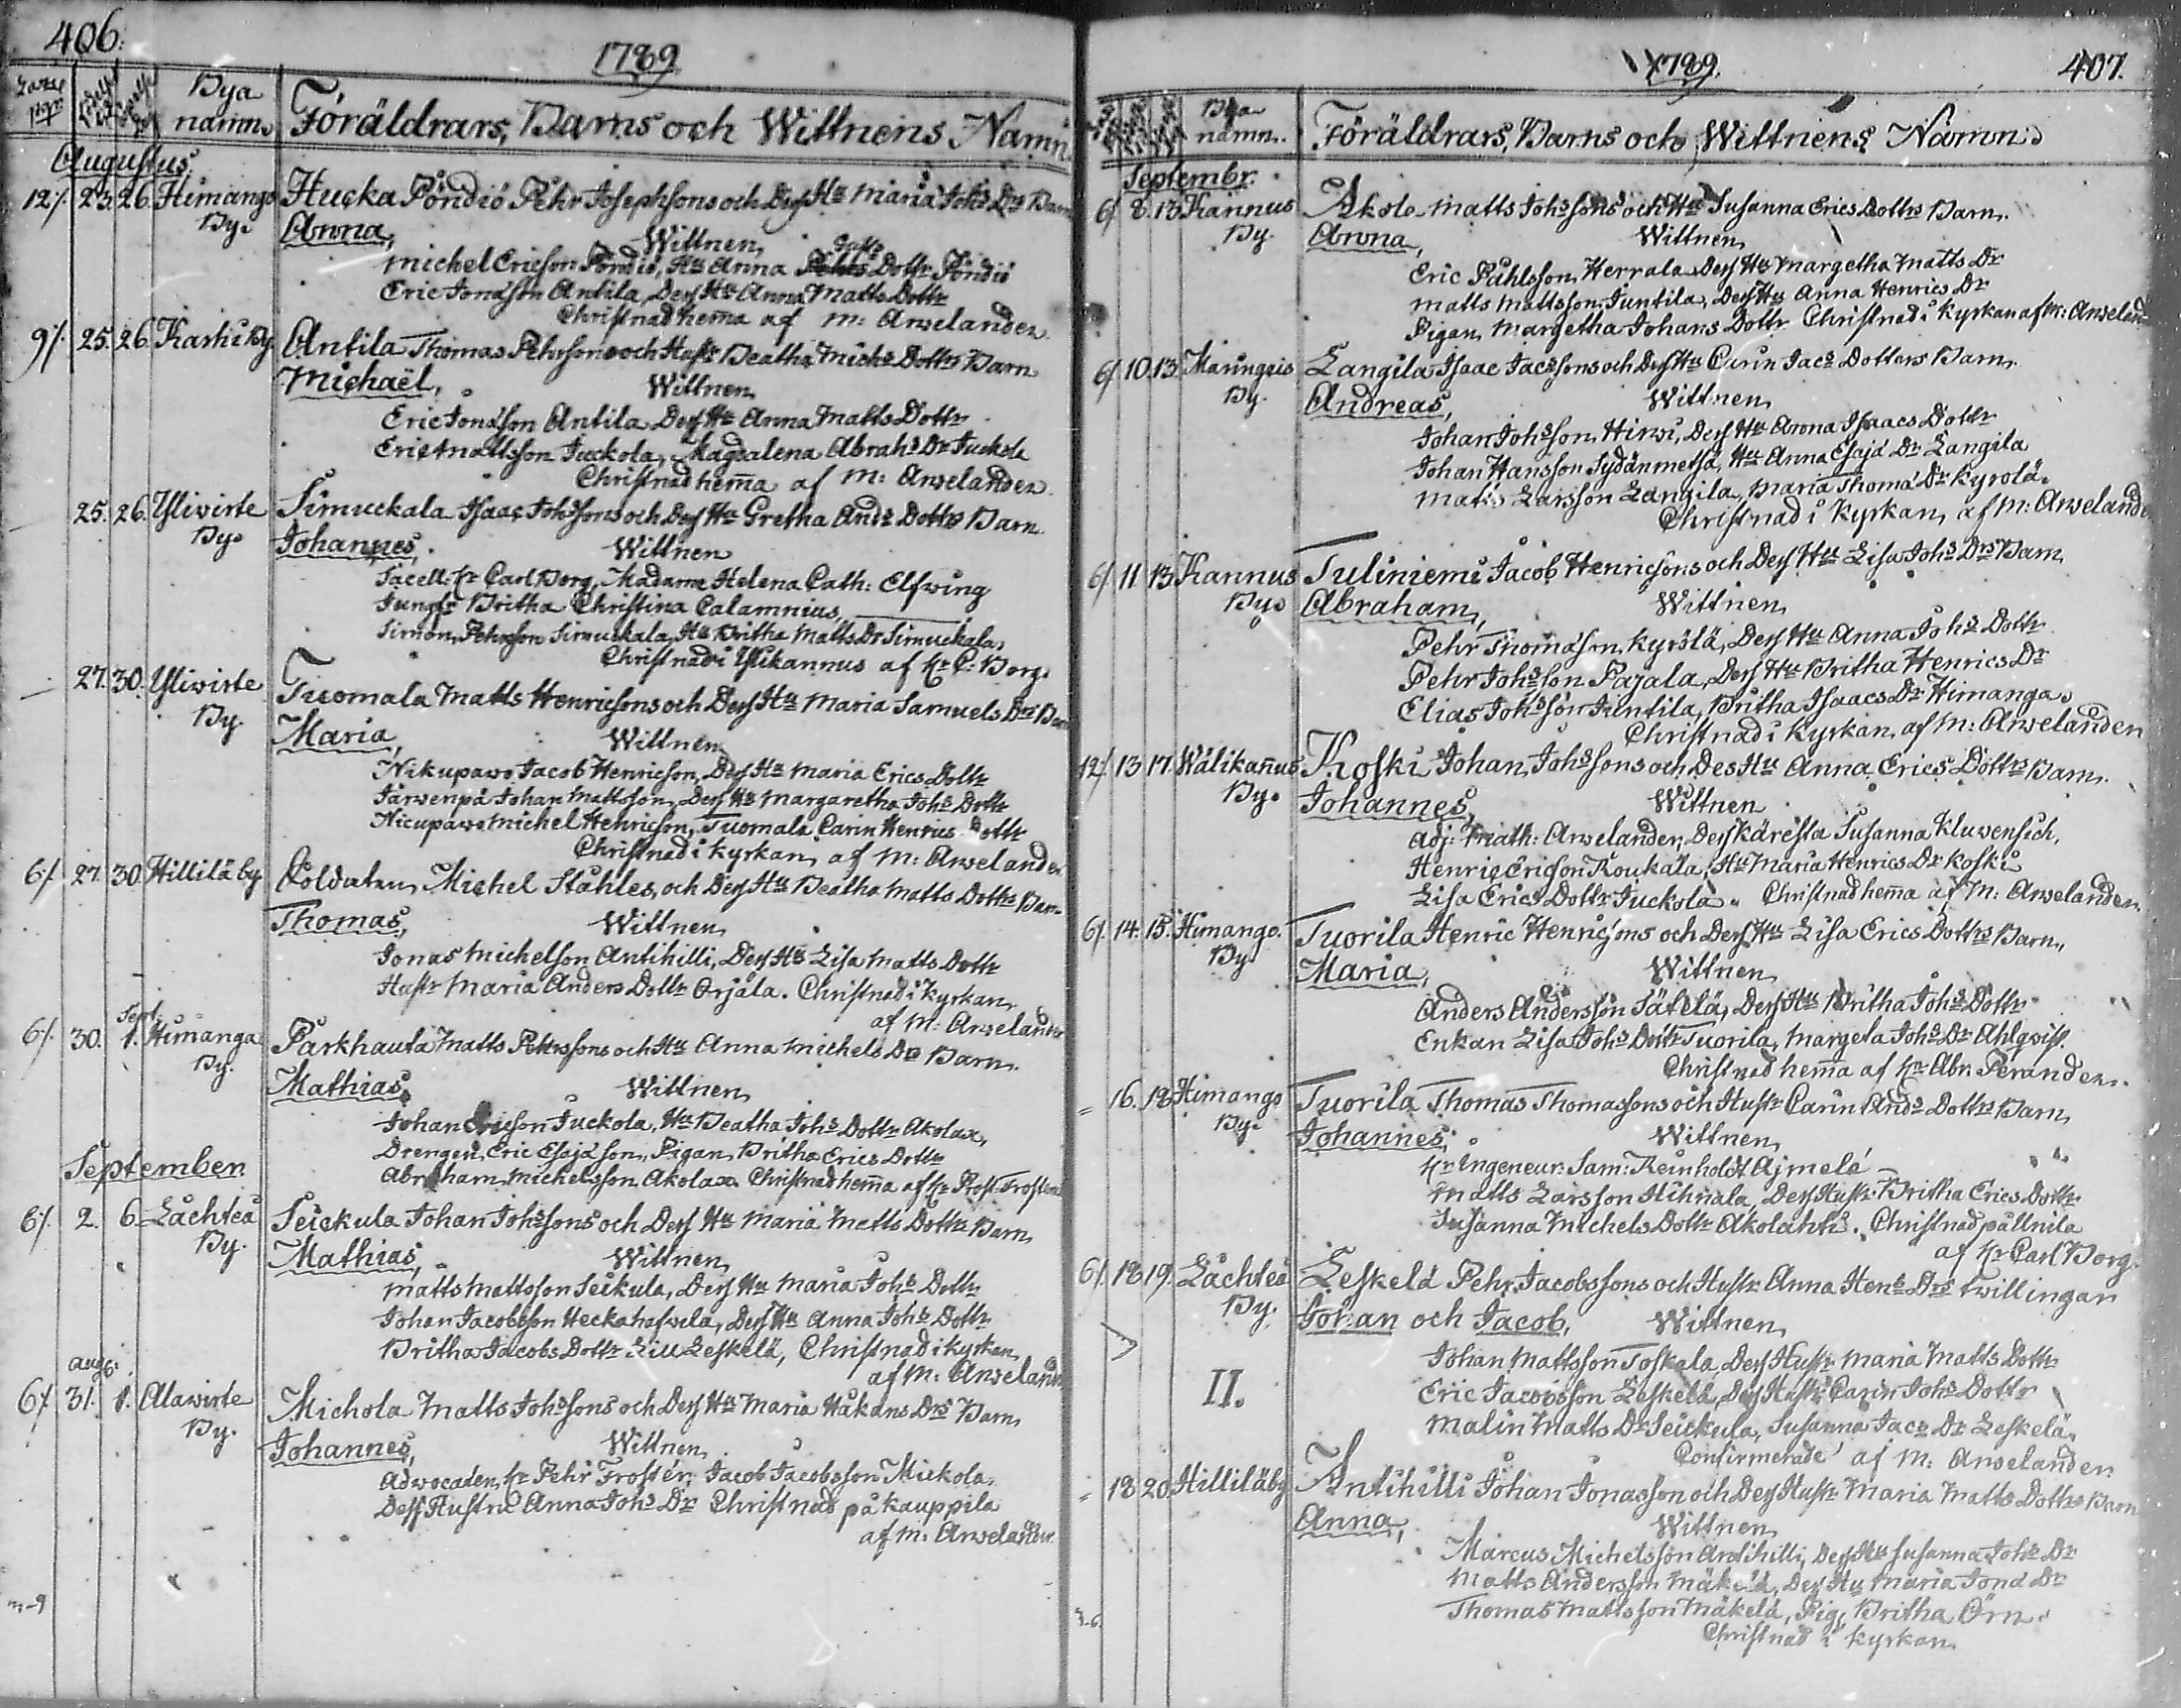 406.
1789
Bya namn.
Föräldrars, Barns och Wittnens Namn
Augustus.
12/. 23. 26. Himango By. Hucka Pöndiö Pehr Josephsons och Dess Hu Maria Johs Drs Barn
Anna, Wittnen
Michel Ericson Pöndiö, Hu Anna Dottr Pöndiö
Eric Jonasson Antila, Dess Hu Anna Matts Dottr
Christnad hemma af M: Arwelander
9/. 25. 26. Karhi By Antila Thomas Pehrsons och Hustr Beatha Michs Dottrs Barn
Michaël, Wittnen
Eric Jonasson Antila Dess Hu Anna Matts Dottr
Eric Mattsson Juckola, Magdalena Abrahs Dr Juckola
Christnad hemma af M: Arwelander
25. 26. Yliwirte By. Simuckala Isaac Johssons och Dess Hu Gretha Ands Dottrs Barn
Johannes, Wittnen
Sacell: Hr Carl Borg, Madame Helena Cath: Elfwing
Jungfr Britha Christina Calamnius,
Simon Pehrson Simuckala, Hu Britha Matts Dr Simuckala,
Christnad i Ylikannus af Hr C: Borg.
27. 30. Yliwirte By. Tuomala Matts Henricsons och Dess Hu Maria Samuels Drs Barn
Maria, Wittnen
Nikupawo Jacob Henricson, Dess Hu Maria Erics Dottr
Järwenpä Johan Mattsson, Dess Hu Margaretha Johs Dottr
Nicupawo Michel Henricson, Tuomala Carin Henrics Dottr
Christnad i kyrkan af M: Arwelander.
6/. 27. 30. Hillilä by Soldaten Michel Ståhles, och Dess Hu Beatha Matts Dottrs Barn
Thomas, Wittnen
Jonas Michelson Antihilli, Dess Hu Lisa Matts Dottr
Hustr Maria Anders Dottr Orjala. Christnad i kyrkan
af M: Arwelander
Sept.
6/. 30. 1. Himanga By. Parkhauta Matts Pehrssons och Hu Anna Michels Drs Barn.
Mathias, Wittnen
Johan Ericson Juckola, Hu Beatha Johs Dottr Akolax,
Drengen Eric Esajæson, Pigan Britha Erics Dottr
Abraham Michelsson Akolax. Christnad hemma af Hr Prost: Frosterus
September.
6/. 2. 6. Låchteå By. Seickula Johan Johssons och Dess Hu Maria Matts Dottrs Barn
Mathias, Wittnen
Matts Mattsson Seikula, Dess Hu Maria Johs Dottr
Johan Jacobsson Heckahaswela, Dess Hu Anna Johs Dottr
Britha Jacobs Dottr Liu Leskelä, Christnad i kyrkan
af M: Arwelander
aug:
6/. 31. 1. Alawirte By. Michola Matts Johssons och Dess Hu Maria Håkans Drs Barn
Johannes, Wittnen
Adwocaden, Hr Pehr Frostér, Jacob Jacobsson Mickola,
Dess Hustru Anna Johs Dr Christnad på Kauppila
af M: Arwelander.
1789.
407.
Bya namn.
Föräldrars, Barns och Wittnens Namn
Septembr.
6/ 8. 13. Kannus By. Akola Matts Johssons och Hu Susanna Erics Dottrs Barn.
Anna, Wittnen
Eric Påhlsson Herrala, Dess Hu Margetha Matts Dr
Matts Mattsson Juntila, Dess Hu Anna Henrics Dr
Pigan Margetha Johans Dottr Christnad i kyrkan af M: Arwelander
6/ 10. 13. Maringais By. Langila Isaac Jacssons och Dess Hu Carin Jacs Dotters Barn
Andreas, Wittnen
Johan Johsson Hirwi, Dess Hu Anna Isaacs Dottr
Johan Hansson Sydänmetsä, Hu Anna Esajæ Dr Langila
Matts Larsson Langila, Maria Thomæ Dr Kyrölä.
Christnad i kyrkan af M: Arwelander
6/ 11 13. Kannus By. Tuliniemi Jacob Henricsons och Dess Hu Lisa Johs Drs Barn
Abraham, Wittnen
Pehr Thomasson Kyrölä, Dess Hu Anna Johs Dottr
Pehr Johsson Pajala, Dess Hu Britha Henrics Dr
Elias Johsson Juntila, Britha Isaacs Dr Himanga
Christnad i Kyrkan af M: Arwelander
12/ 13 17. Wälikannus By. Koski Johan Johssons och Des Hu Anna Erics Dottrs Barn.
Johannes, Wittnen
Adj: Math: Arwelander, Des käresta Susanna Kluwensich,
Henric Ericson Roukala, Hu Maria Henrics Dr Koski
Lisa Erics Dottr Juckola. Christnad hemma af M: Arwelander.
6/. 14. 15. Himango. By Tuorila Henric Henricsons och Dess Hu Lisa Erics Dottrs Barn
Maria, Wittnen
Anders Andersson Säteläˌ Dess Hu Britha Johs Dottr
Enkan Lisa Johs Dottr Tuorila, Margeta Johs Dr Ahlqwist.
Christnad hemma af Hr Abr. Perander.
= 16. 18. Himango By. Tuorila Thomas Thomassons och Hustr Carin Ands Dottrs Barn
Johannes, Wittnen
Hr Ingeneur: Sam: Reinholdt Ajmelé
Matts Larsson Hihnala, Dess Hustr Britha Erics Dottr
Susanna Michels Dottr Akolahti. Christnad på Unila
af Hr Carl Borg.
6/. 18 19. Låchteå By. Leskelä Pehr Jacobssons och Hustr Anna Hens Drs twillingar
Johan och Jacob, Wittnen
II.
Johan Mattsson Toskala, Dess Hustr Maria Matts Dottr
Eric Jacobsson Leskelä, Dess Hustr Carin Johs Dottr
Malin Matts Dr Seickula, Susanna Jacs Dr Leskelä,
Confirmerade af M: Arwelander.
= 18 20. Hillilä by Antihilli Johan Jonasson och Dess Hustr Maria Matts Dottrs Barn
Anna, Wittnen
Marcus Michelsson Antihilli, Dess Hu Susanna Johs Dr
Matts Andersson Mäkelä, Dess Hu Maria Jonæ Dr
Thomas Mattsson Mäkelä, Pig. Britha Örn.
Christnad i kyrkan